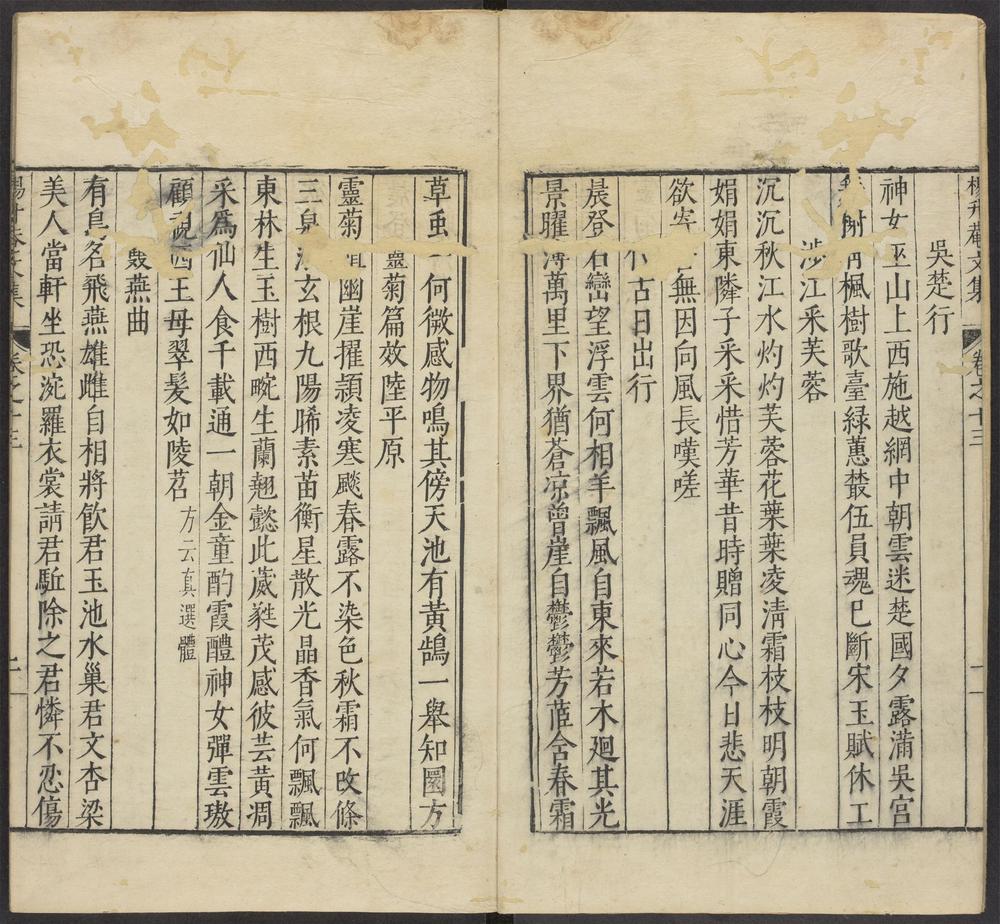 楊升菴文集 卷之十三 二
吳楚行
神女巫山上西施越網中朝雲迷楚國夕露滿吳宮
楓樹歌臺綠蕙叢伍員魂已斷宋玉賦休工
涉江采芙蓉
沉沉秋江水灼灼芙蓉花葉葉凌清霜枝枝明朝霞
娟娟東隣子采采惜芳華昔時贈同心今日悲天涯
欲寄無因向風長嘆嗟
古日出行
晨登君巒望浮雲何相羊飄風自東來若木廻其光
景曜薄萬里下界猶蒼凉曾崖自鬱鬱芳蓝含春霜
草虫一何微感物鳴其傍天池有黃鵠一舉知圜方
靈菊篇效陸平原
靈菊植幽崖擢頴凌寒飈春露不染色秋霜不改條
三泉玄根九陽晞素苗衡星散光晶杳氣何飄飄
東林生玉樹西畹生蘭翹懿此葳蕤茂感彼芸黃凋
采爲仙人食千載通一朝金童酌霞醴神女彈雲璈
顧謝西王母翠髮如陵苕 方云真選體
燕曲
有鳥名飛燕雄雌自相將飲君玉池水巢君文杏梁
美人當軒坐恐涴羅衣裳請君駈除之君憐不忍傷
楊升菴文集 卷之十三